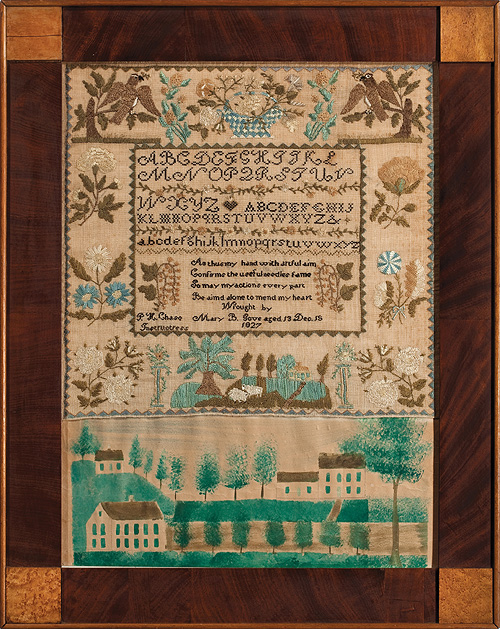 ABCDEFGHIJKL
MNOPQRSTUV
WXYZ ABCDEFGHIJ
KLMNOPQRSTUVWXYZ&
abcdefghijklmnopqrstuvwxyz
As thus my hand with artful aim
Confirms the useful needles fame
So may my actions every part
Be aimd alone to mend my heart
Wrought by
P. H. Chase Mary B. Gove aged 13 Dec. 15
Instructress 1827